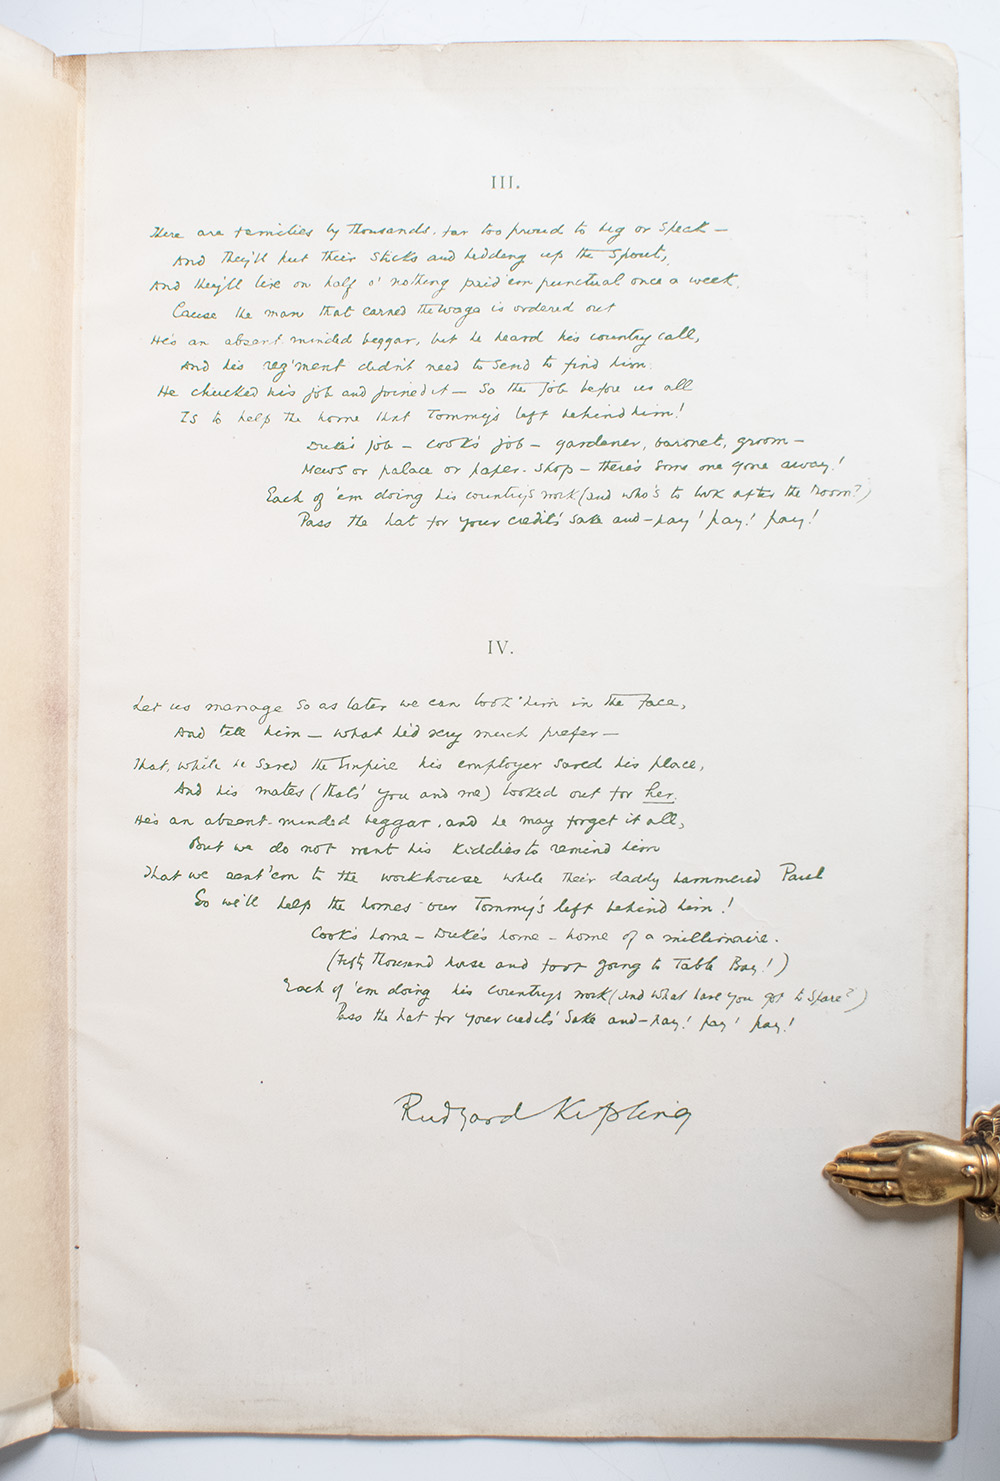 III.
There are families by thousands, far too proud to beg or speak –
And they'll put their sticks and bedding up the spout,
And they'll live on half o' nothing paid 'em punctual once a week,
Cause the man that earned the wage is ordered out
He's an absent-minded beggar, but he heard his country call,
And his reg'ment didn't need to send to find him:
He chucked his job and joined it – So the job before us all
Is to help the home that Tommy's left behind him!
Duke's job – Cook's job – gardener, baronet, groom –
Mews or palace or paper-shop – there's some one gone away!
Each of 'em doing his country's work (and who's to look after the room?)
Pass the hat for your credit's sake and – pay! pay! pay!
IV.
Let us manage so as later we can look him in the face,
And tell him – what he'd very much prefer –
That, while he saved the Empire his employer saved his place,
And his mates (that's you and me) looked out for her.
He's an absent-minded beggar, and he may forget it all,
But we do not want his kiddies to remind him
That we sent 'em to the workhouse while their daddy hammered Paul
So we'll help the homes our Tommy's left behind him!
Cook's home – Duke's home – home of a millionaire.
(Fifty thousand horse and foot going to Table Bay!)
Each of 'em doing his country's work (and what have you got to spare?)
Pass the hat for your credit's sake and – pay! pay! pay!
Rudyard Kipling